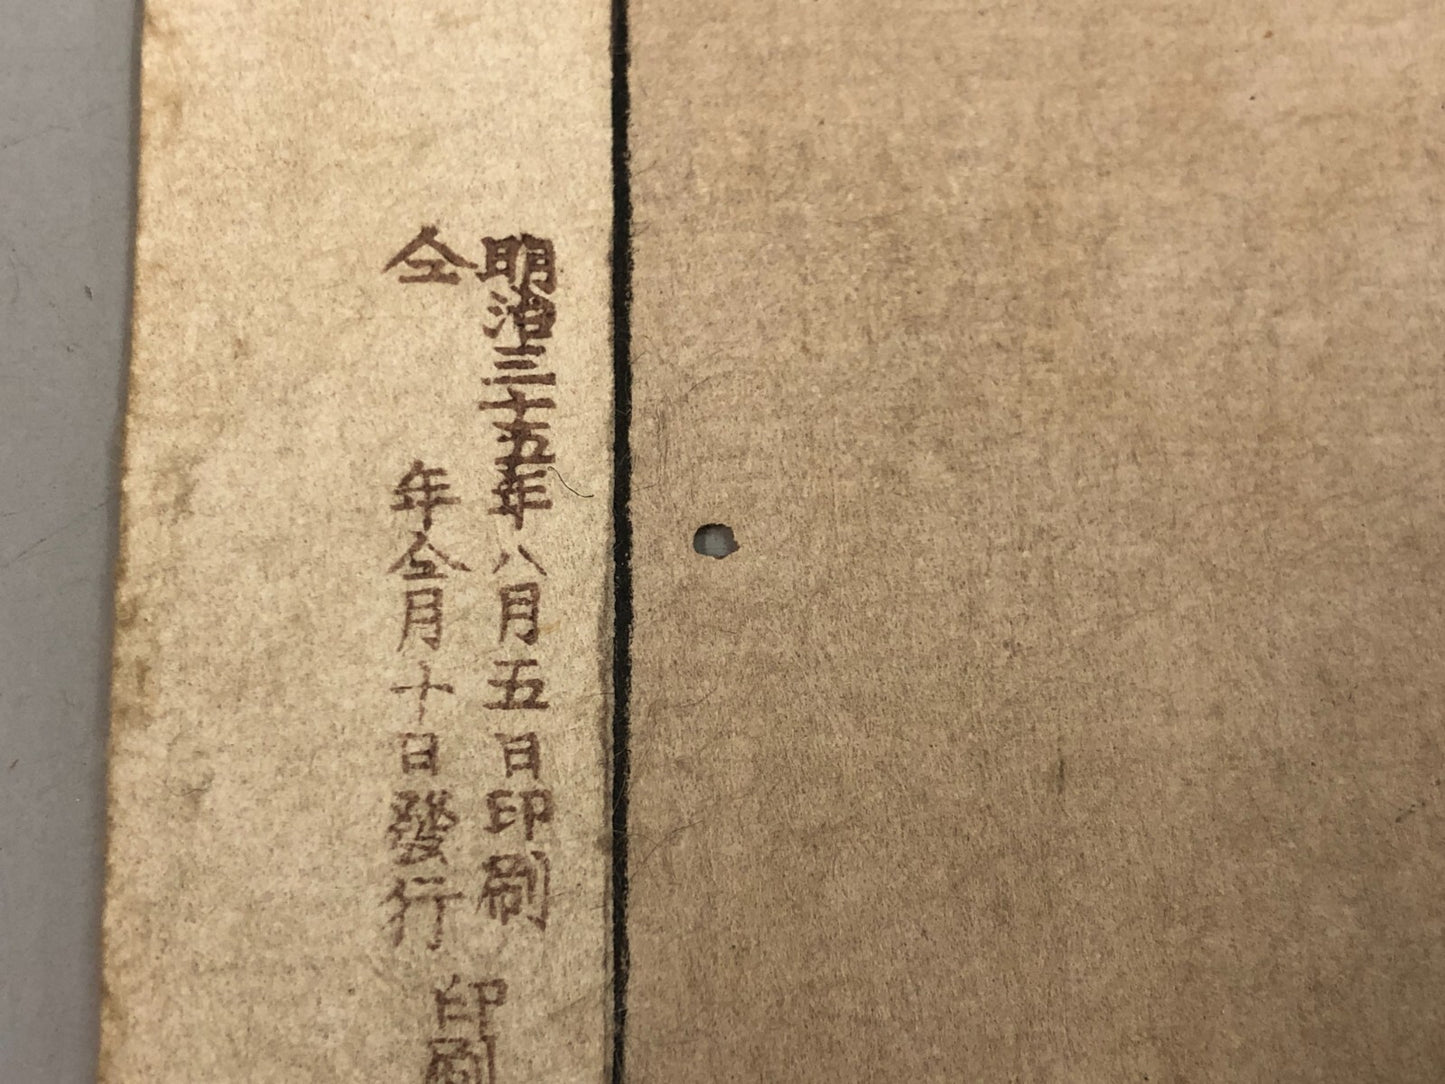 明治三十五年八月五日印刷
仝年仝月十日發行
印刷